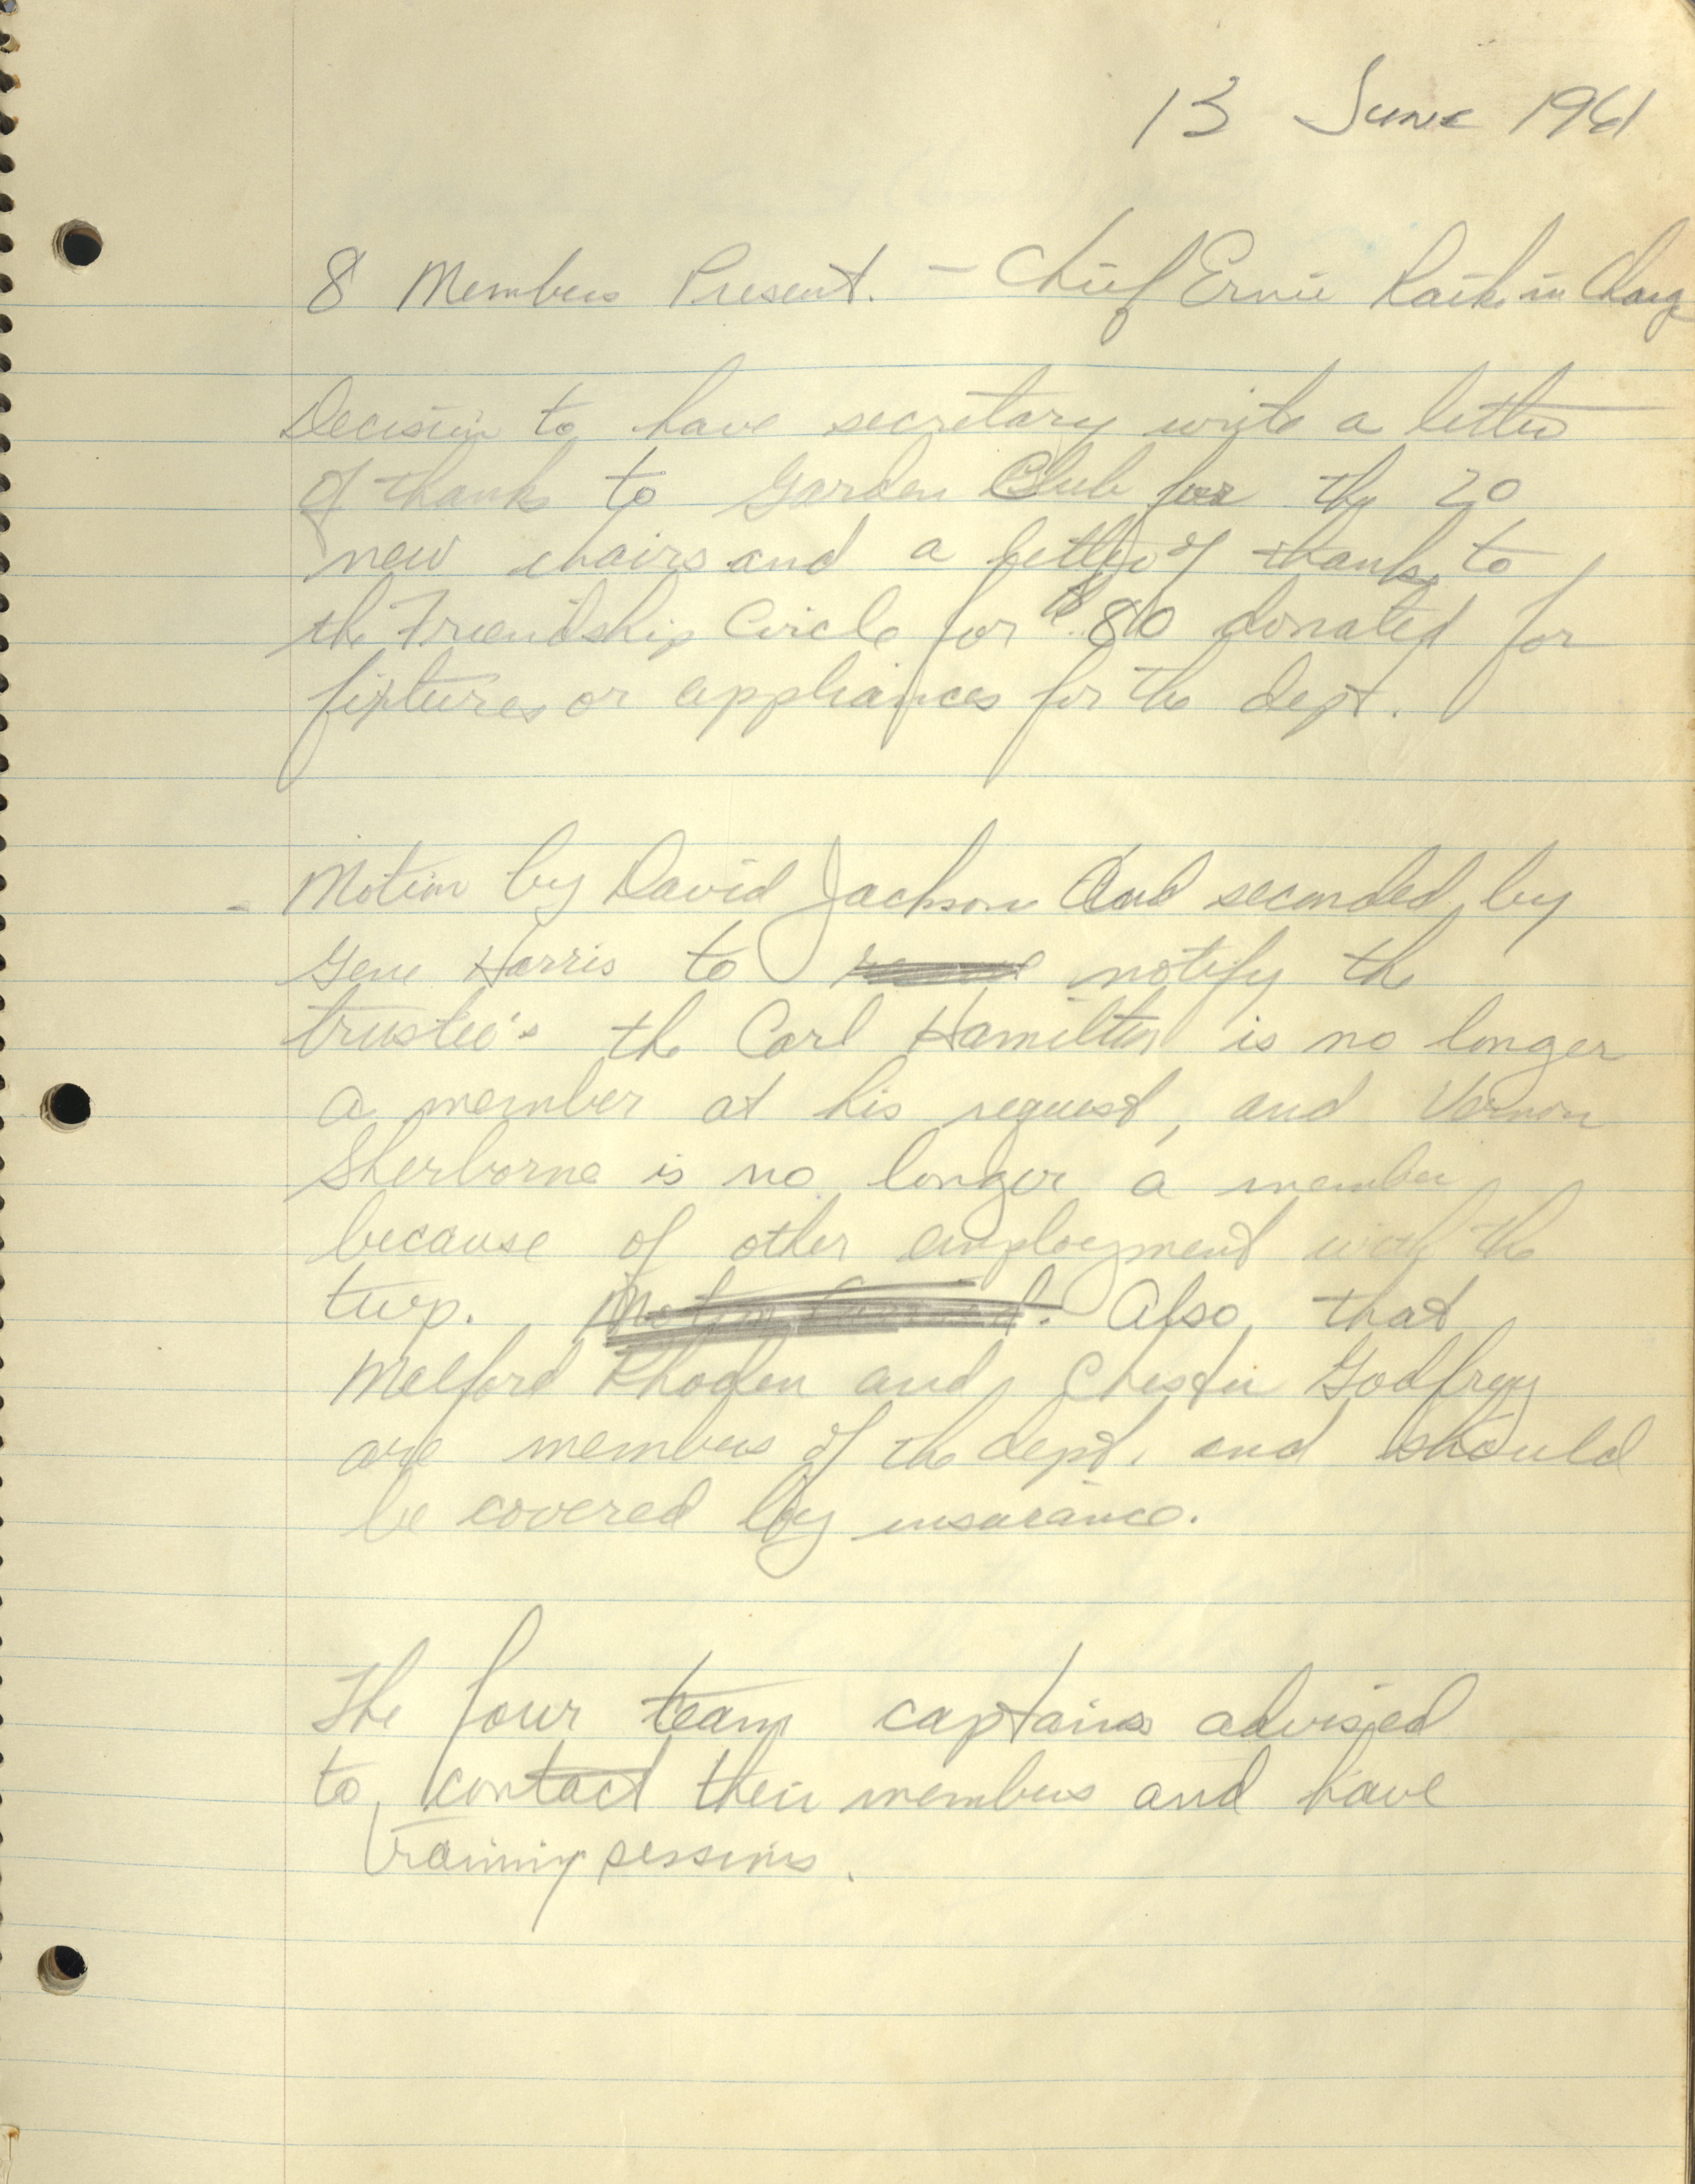 13 June 1961
8 Members Present. - Chief Ernie in Charge
Decision to have secretary write a letter
of thanks to Garden Club for the 20
new chairs and a letter of thanks to
the Friendship Circle for $80 donated for
fixtures or appliances for the dept.
- Motion by David Jackson and seconded by
Gene Harris to notify the
trustee's the Carl Hamilton is no longer
a member at his request, and Vernon
Sherborne is no longer a member
because of other employment with the
twp. Motion Carried. Also, that
Melford Rhoden and Chester Godfrey
are members of the dept. and should
be covered by insurance.
The four team captains advised
to contact their members and have
training sessions.